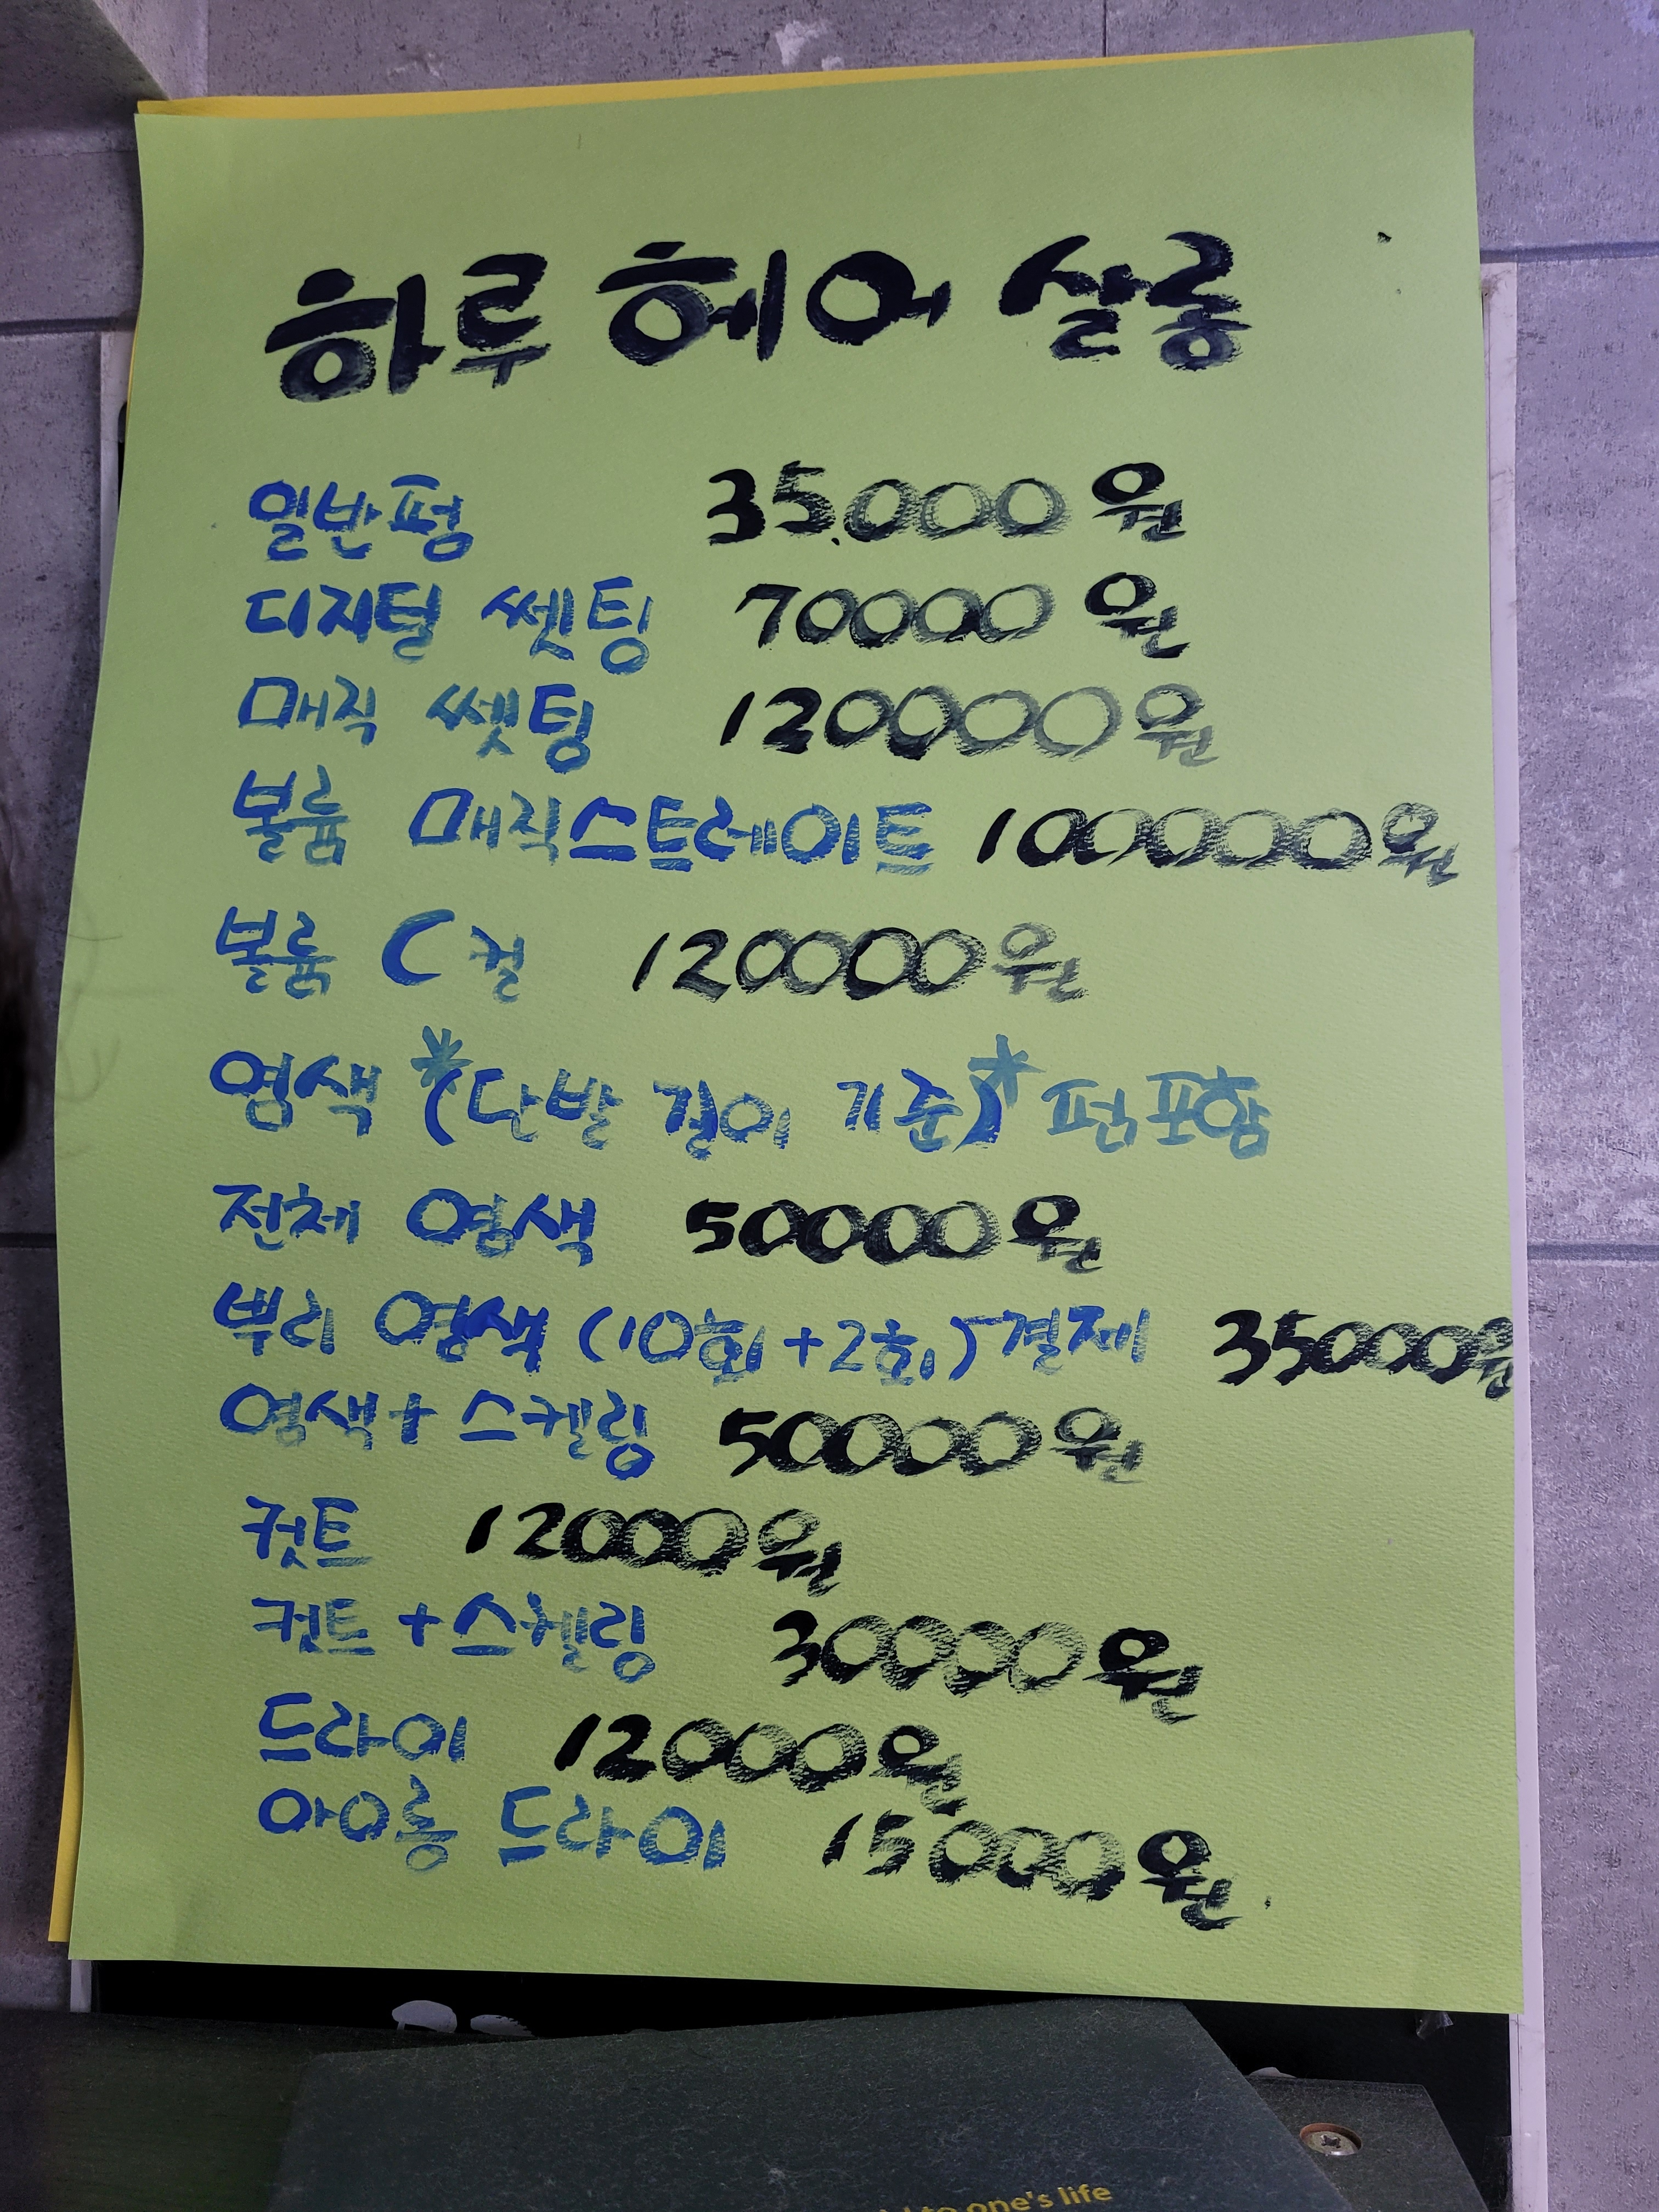 하루 헤어 살롱
일반펌 35.000원
디지털 쎗팅 70000원
매직 쎗팅 120000원
볼륨 매직스트레이트 100000원
볼륨 C컬 120000원
염색 *(단발 길이 기준)* 펌포함
전체 염색 50000원
뿌리 염색 (10회+2회) 결제 35000원
염색+스켈링 50000원
컷트 12000원
컷트+스켈링 30000원
드라이 12000원
아이롱 드라이 15000원
to one's life